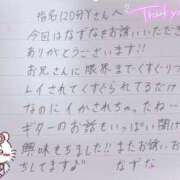 指名120分Yさんへ
Thank you
今回はなずなをお誘いいただき
ありがとうございます!!
お兄さんに限界までくすぐりプ
レイされてくすぐられてるだけ
なのにイかされちゃったね…
ギターのお話もいっぱい聞け
興味もちました!!またお誘いお
ちしてますね♪
なずな